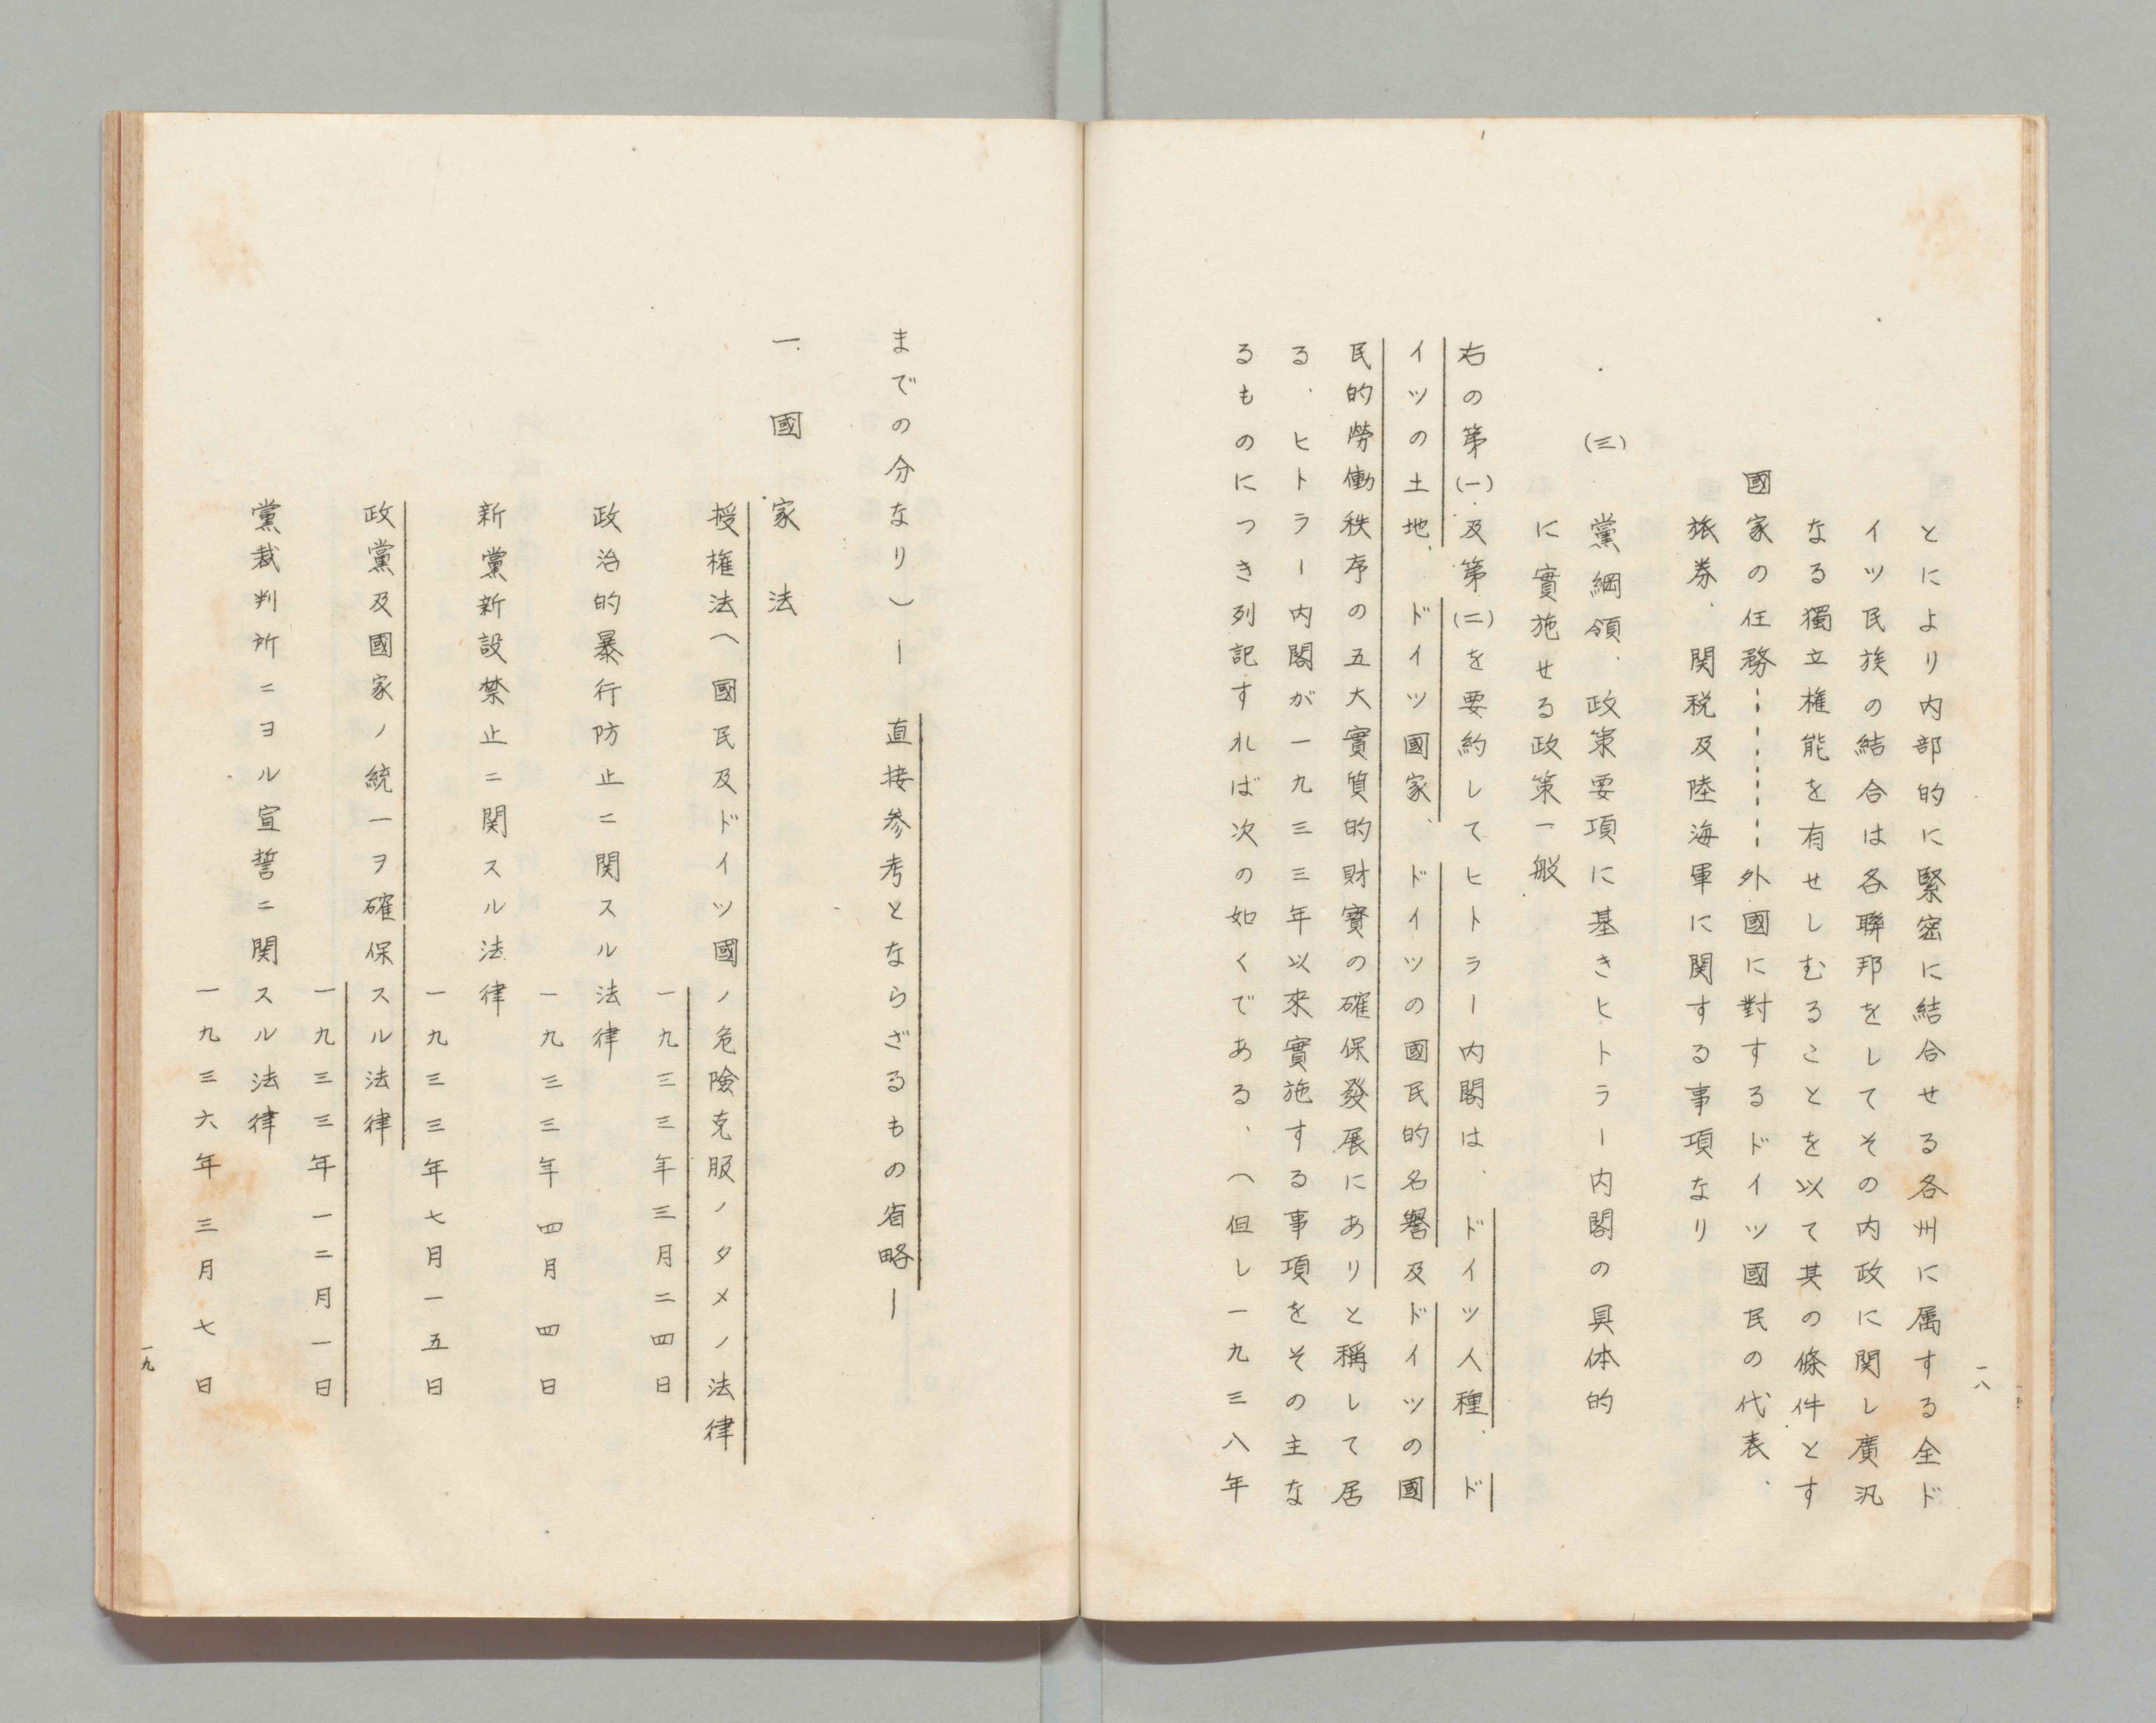 一八
とにより内部的に緊密に結合せる各州に属する全ド
イツ民族の結合は各聯邦をしてその内政に関し廣汎
なる獨立権能を有せしむることを以て其の條件とす
國家の任務………外國に對するドイツ國民の代表、
旅券、関税及陸海軍に関する事項なり
(三) 黨綱領、政策要項に基きヒトラー内閣の具体的
に實施せる政策一般
右の第(一)及第(二)を要約してヒトラー内閣は、ドイツ人種、ド
イツの土地、ドイツ國家、ドイツの國民的名譽及ドイツの國
民的勞働秩序の五大實質的財寶の確保發展にありと稱して居
る、ヒトラー内閣が一九三三年以來實施する事項をその主な
るものにつき列記すれば次の如くである、(但し一九三八年
までの分なり)ー直接参考とならざるもの省略ー
一、國家法
授権法(國民及ドイツ國ノ危険克服ノタメノ法律
一九三三年三月二四日
政治的暴行防止ニ関スル法律
一九三三年四月四日
新黨新設禁止ニ関スル法律
一九三三年七月一五日
政黨及國家ノ統一ヲ確保スル法律
一九三三年一二月一日
黨裁判所ニヨル宣誓ニ関スル法律
一九三六年三月七日
一九